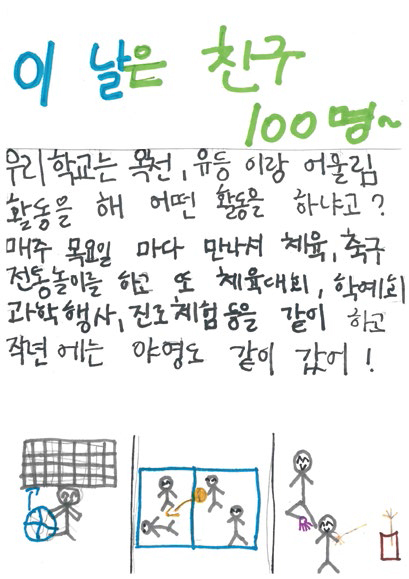 이 날은 친구
100명~
우리 학교는 옥천, 유등 이랑 어울림
활동을 해 어떤 활동을 하냐고?
매주 목요일 마다 만나서 체육, 축구
전통놀이를 하고 또 체육대회, 학예회
과학행사, 진로체험 등을 같이 하고
작년에는 야영도 같이 갔어!